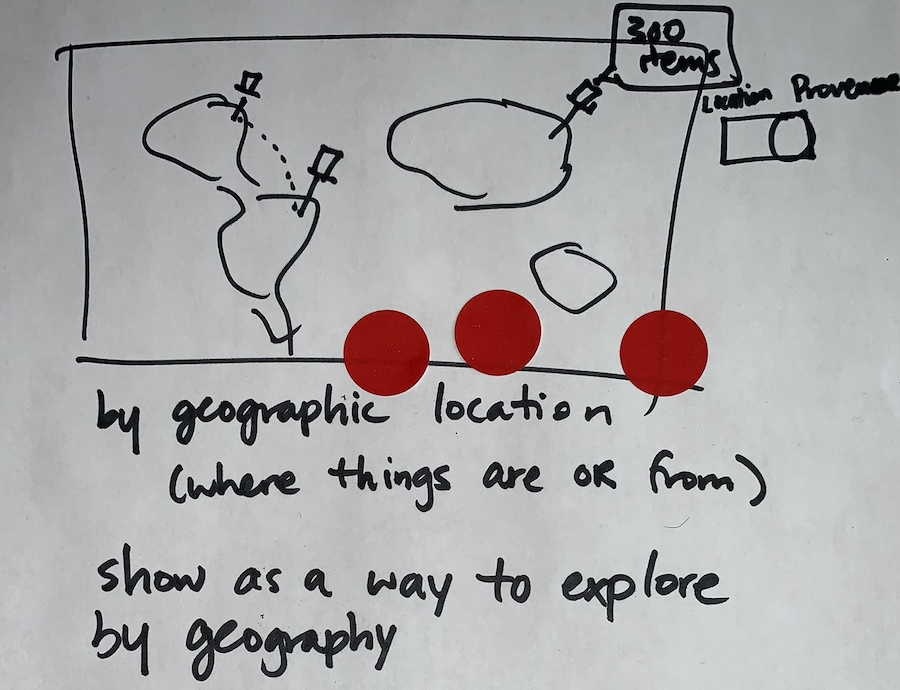 300
items
Location Provenance
by geographic location
(where things are or from)
show as a way to explore
by geography